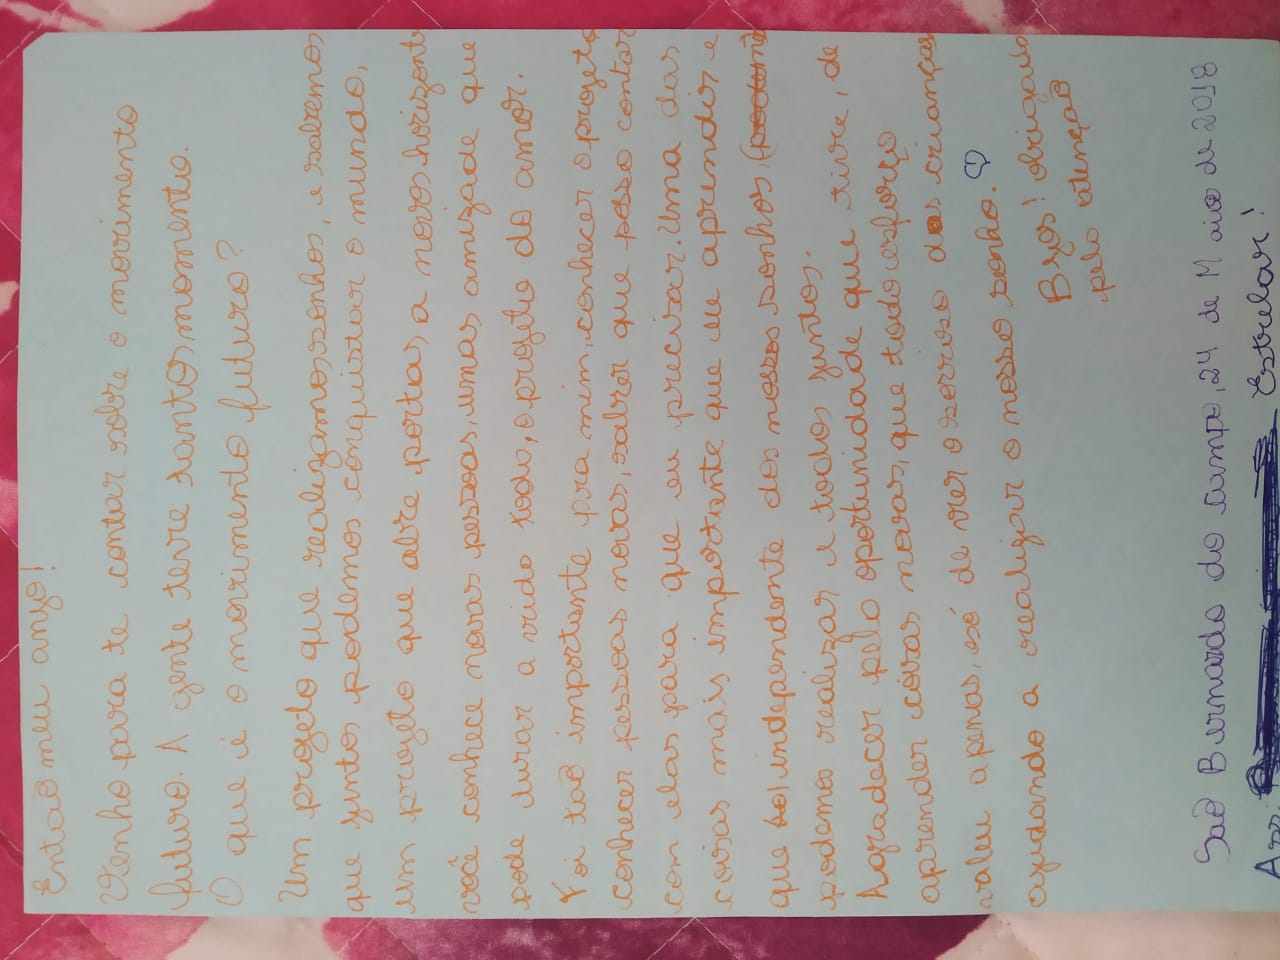 Então meu anjo!
Venho para te contar sobre o movimento
futuro. A gente teve tantos momento.
O que é o movimento futuro?
Um projeto que realizamos sonhos, e sabemos
que juntos podemos conquistar o mundo,
um projeto que abre portas, a novos horizonte
você conhece novas pessoas, umas amizade que
pode durar a vida toda, o projeto do amor.
Foi taõ importante pra mim, conhecer o projeto
conhecer pessoas novas, saber que posso contar
com elas para que eu precisar. Uma das
coisas mais importante que eu aprendir, e
que independente dos nossos sonhos,
podemos realizar e todos juntos.
Agradecer pela oportunidade que tive, de
aprender coisas novas, que todo esforço
valeu a penas, só de ver o sorriso das crianças
ajudando a realizar o nosso sonho.
Bjos! obrigada
pela atençaõ
Saõ Bernardo do campo, 24 de Maio de 2018
Ass: Estrelar!